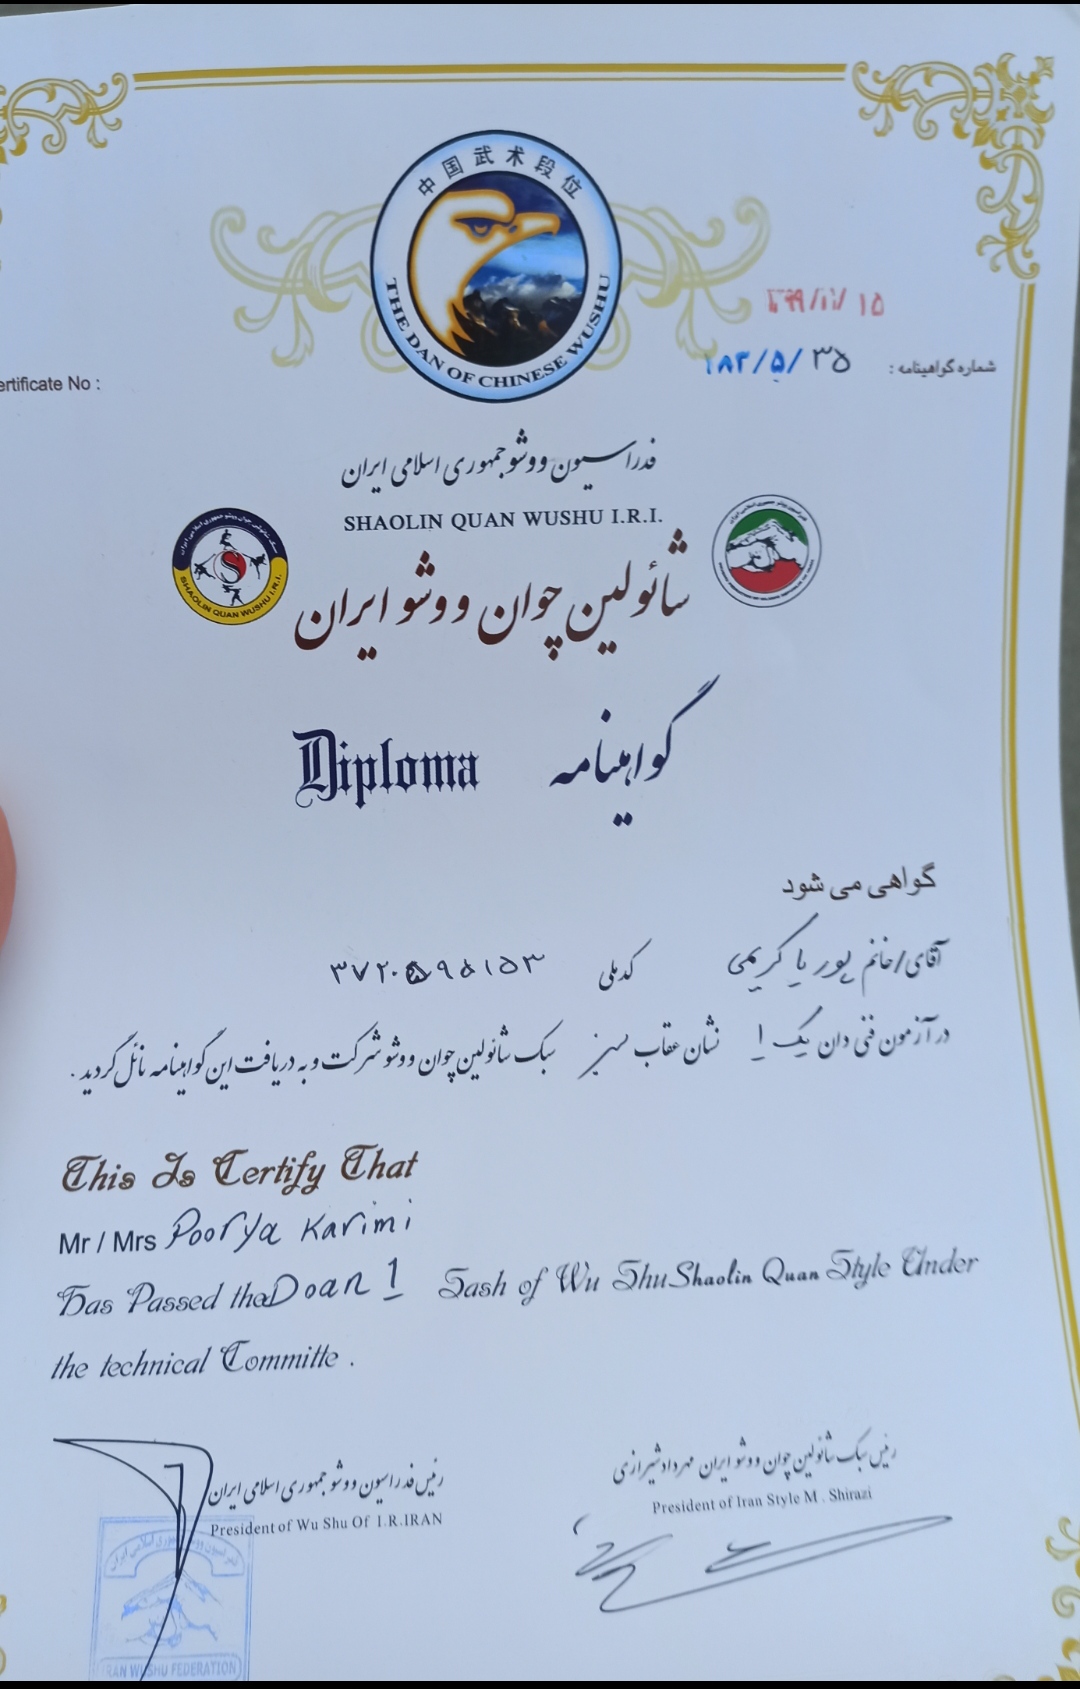 中国武术段位
THE DAN OF CHINESE WUSHU
۱۵
شماره گواهینامه : ۳۵ /۵/ ۱۸۲
ertificate No :
فدراسیون ووشو جمهوری اسلامی ایران
SHAOLIN QUAN WUSHU I.R.I.
SHAOLIN QUAN WUSHU I.R.I.
شائولین چوان ووشو ایران
Diploma گواهینامه
گواهی می شود
آقای/خانم پوریا کریمی کدملی
در آزمون فنی دان یک ۱ نشان عقاب سبز سبک شائولین چوان ووشو شرکت و به دریافت این گواهینامه نائل گردید .
This Is Certify That
Mr / Mrs Poorya Karimi
Has Passed the Doan 1 Sash of Wu Shu Shaolin Quan Style Under
the technical Committe .
رئیس سبک شائولین چوان ووشو ایران مهرداد شیرازی
President of Iran Style M . Shirazi
رئیس فدراسیون ووشو جمهوری اسلامی ایران
President of Wu Shu Of I.R.IRAN
IRAN WUSHU FEDERATION